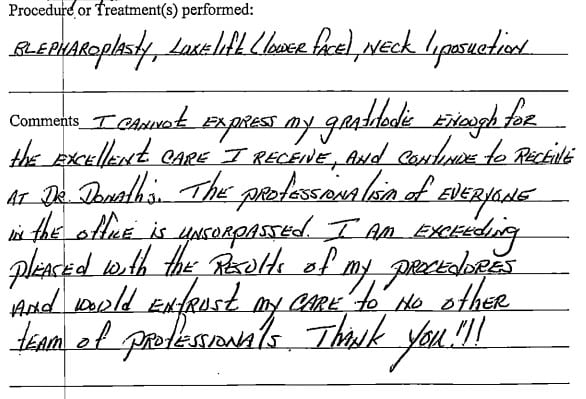 Procedure or Treatment(s) performed:
BLEPHAROplasty, LAXELift (lower face), NECK liposuction
Comments I CANNOT EXPRESS my gratitudie Enough for
the EXCELLENT CARE I RECEIVE, AND CONTINUE to RECEIVE
AT DR. DONATH's. THE PROFESSIONAlism of EVERYONE
in the office is UNSORPASSED. I AM EXCEEDing
pleased with the RESults of my PROCEDURES
AND would ENTRUST my CARE to NO other
tEAM of PROFESSIONAls. Thank you!!!